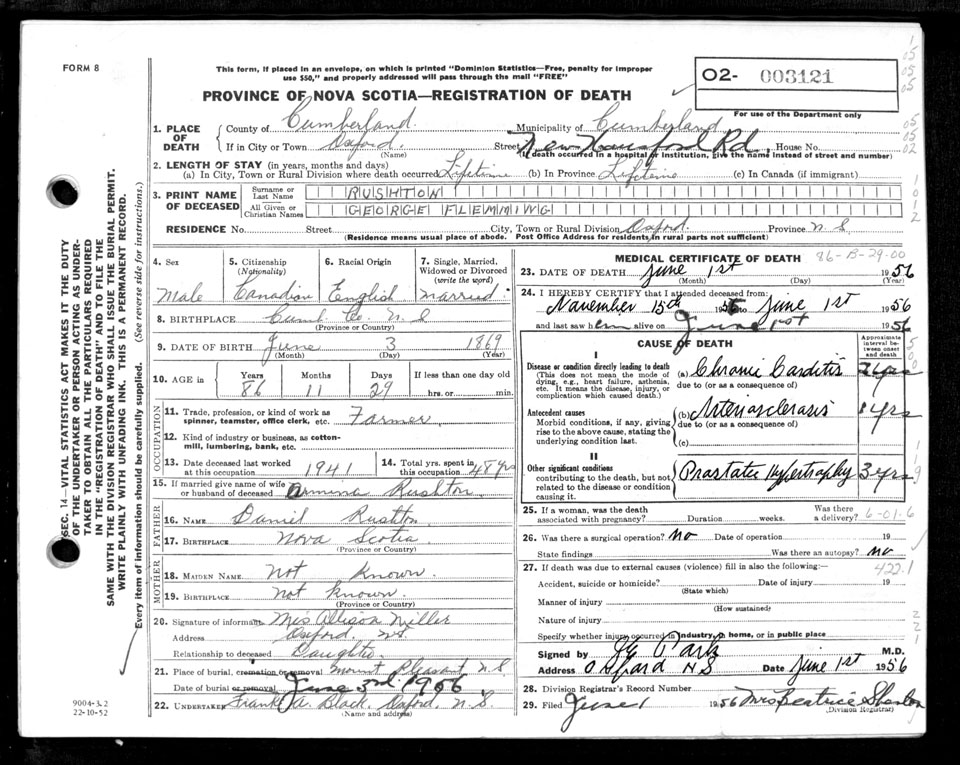 FORM 8
This form, if placed in an envelope, on which is printed "Dominion Statistics—Free, penalty for improper
use $50," and properly addressed will pass through the mail "FREE"
O2- 003121
For use of the Department only
PROVINCE OF NOVA SCOTIA—REGISTRATION OF DEATH
1. PLACE OF DEATH
County of Cumberland Municipality of Cumberland
If in City or Town Oxford (Name) Street Rd. House No.
(If death occurred in a hospital or institution, give the name instead of street and number)
2. LENGTH OF STAY (in years, months and days)
(a) In City, Town or Rural Division where death occurred Lifetime (b) In Province Lifetime (c) In Canada (if immigrant)
3. PRINT NAME OF DECEASED
Surname or Last Name RUSHTON
All Given or Christian Names GEORGE FLEMMING
RESIDENCE No. Street City, Town or Rural Division Oxford. Province N.S
(Residence means usual place of abode. Post Office Address for residents in rural parts not sufficient)
4. Sex Male
5. Citizenship (Nationality) Canadian
6. Racial Origin English
7. Single, Married, Widowed or Divorced (write the word) Married
8. BIRTHPLACE Cumb Co. N.S
(Province or Country)
9. DATE OF BIRTH June 3 1869
(Month) (Day) (Year)
10. AGE in Years 86 Months 11 Days 29 If less than one day old hrs. or min.
OCCUPATION
11. Trade, profession, or kind of work as spinner, teamster, office clerk, etc. Farmer
12. Kind of industry or business, as cotton-mill, lumbering, bank, etc.
13. Date deceased last worked at this occupation 1941
14. Total yrs. spent in this occupation 48 yrs
15. If married give name of wife or husband of deceased Rushton
FATHER
16. NAME Daniel Rushton
17. BIRTHPLACE Nova Scotia
(Province or Country)
MOTHER
18. MAIDEN NAME Not Known
19. BIRTHPLACE not Known
(Province or Country)
20. Signature of informant Mrs Allison Miller
Address Oxford, N.S.
Relationship to deceased Daughter
21. Place of burial, cremation or removal Mount Pleasant N.S
Date of burial or removal June 3rd 1956
22. UNDERTAKER Frank A. Black. Oxford, N.S.
(Name and address)
MEDICAL CERTIFICATE OF DEATH 86-B-29-00
23. DATE OF DEATH June 1st 1956
(Month) (Day) (Year)
24. I HEREBY CERTIFY that I attended deceased from:
November 15th to June 1st 1956
and last saw him alive on June 1st 1956
CAUSE OF DEATH
Approximate interval between onset and death
I
Disease or condition directly leading to death
(This does not mean the mode of dying, e.g., heart failure, asthenia, etc. It means the disease, injury, or complication which caused death.)
(a) Chronic Carditis yrs
due to (or as a consequence of)
Antecedent causes
Morbid conditions, if any, giving rise to the above cause, stating the underlying condition last.
(b) Arteriosclerosis yrs
due to (or as a consequence of)
(c)
II
Other significant conditions
contributing to the death, but not related to the disease or condition causing it.
Prostatic Hypertrophy 3 yrs
25. If a woman, was the death associated with pregnancy? Duration weeks. Was there a delivery? 6-01-6
26. Was there a surgical operation? no Date of operation 19
State findings Was there an autopsy? no
27. If death was due to external causes (violence) fill in also the following:— 422.1
Accident, suicide or homicide? Date of injury 19
(State which)
Manner of injury
(How sustained)
Nature of injury
Specify whether injury occurred in industry, in home, or in public place
Signed by M.D.
Address Oxford NS Date June 1st 1956
28. Division Registrar's Record Number
29. Filed June 1 1956 Mrs Beatrice
(Division Registrar)
SEC. 14—VITAL STATISTICS ACT MAKES IT THE DUTY
OF THE UNDERTAKER OR PERSON ACTING AS UNDER-
TAKER TO OBTAIN ALL THE PARTICULARS REQUIRED
IN THE "REGISTRATION OF DEATH" AND TO FILE THE
SAME WITH THE DIVISION REGISTRAR WHO SHALL ISSUE THE BURIAL PERMIT.
WRITE PLAINLY WITH UNFADING INK. THIS IS A PERMANENT RECORD.
Every item of information should be carefully supplied. (See reverse side for instructions.)
9004-3.2
22-10-52